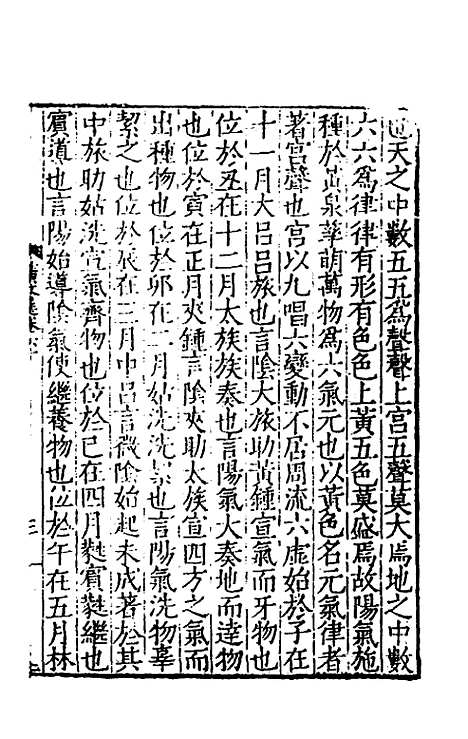 天之中數五五爲聲聲上宫五聲莫大焉地之中數
六六爲律律有形有色色上黃五色莫盛焉故陽氣施
種於黃泉孳萌萬物爲六氣元也以黃色名元氣律者
著宮聲也宮以九唱六變動不居周流六虛始於子在
十一月大吕吕旅也言陰大旅助黃鍾宣氣而牙物也
位於丑在十二月太族族奏也言陽氣大奏地而達物
也位於寅在正月夾鍾言陰夾助太族宣四方之氣而
出種物也位於卯在二月姑洗洗絜也言陽氣洗物辜
絜之也位於辰在三月中吕言微陰始起未成著於其
中旅助姑洗宣氣齊物也位於巳在四月蕤賓蕤繼也
賓道也言陽始導陰氣使繼養物也位於午在五月林
三